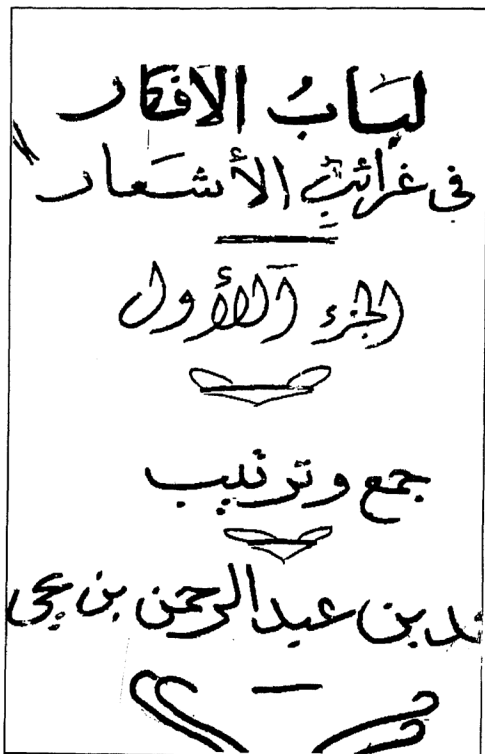 لبَابُ الأفكار
في غرائب الأشعار
الجزء الأول
جمع وترتيب
بن عبد الرحمن بن يحي